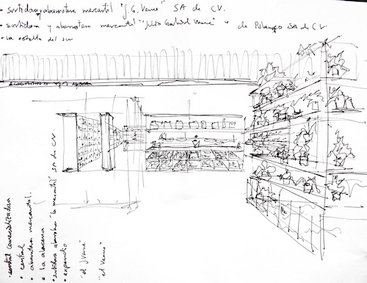 - surtidora y abarrotera mercantil "J.G. Verne" SA de CV.
- surtidora y abarrotera mercantil "Julio Gabriel Verne" de Polanco SA de CV
- La estrella del sur
central comercializadora
• central
• abarrotera mercantil.
• La alacena
surtidora abarrotera "la mercantil" SA de CV
• expendio
"el J Verne"
"el Verne"